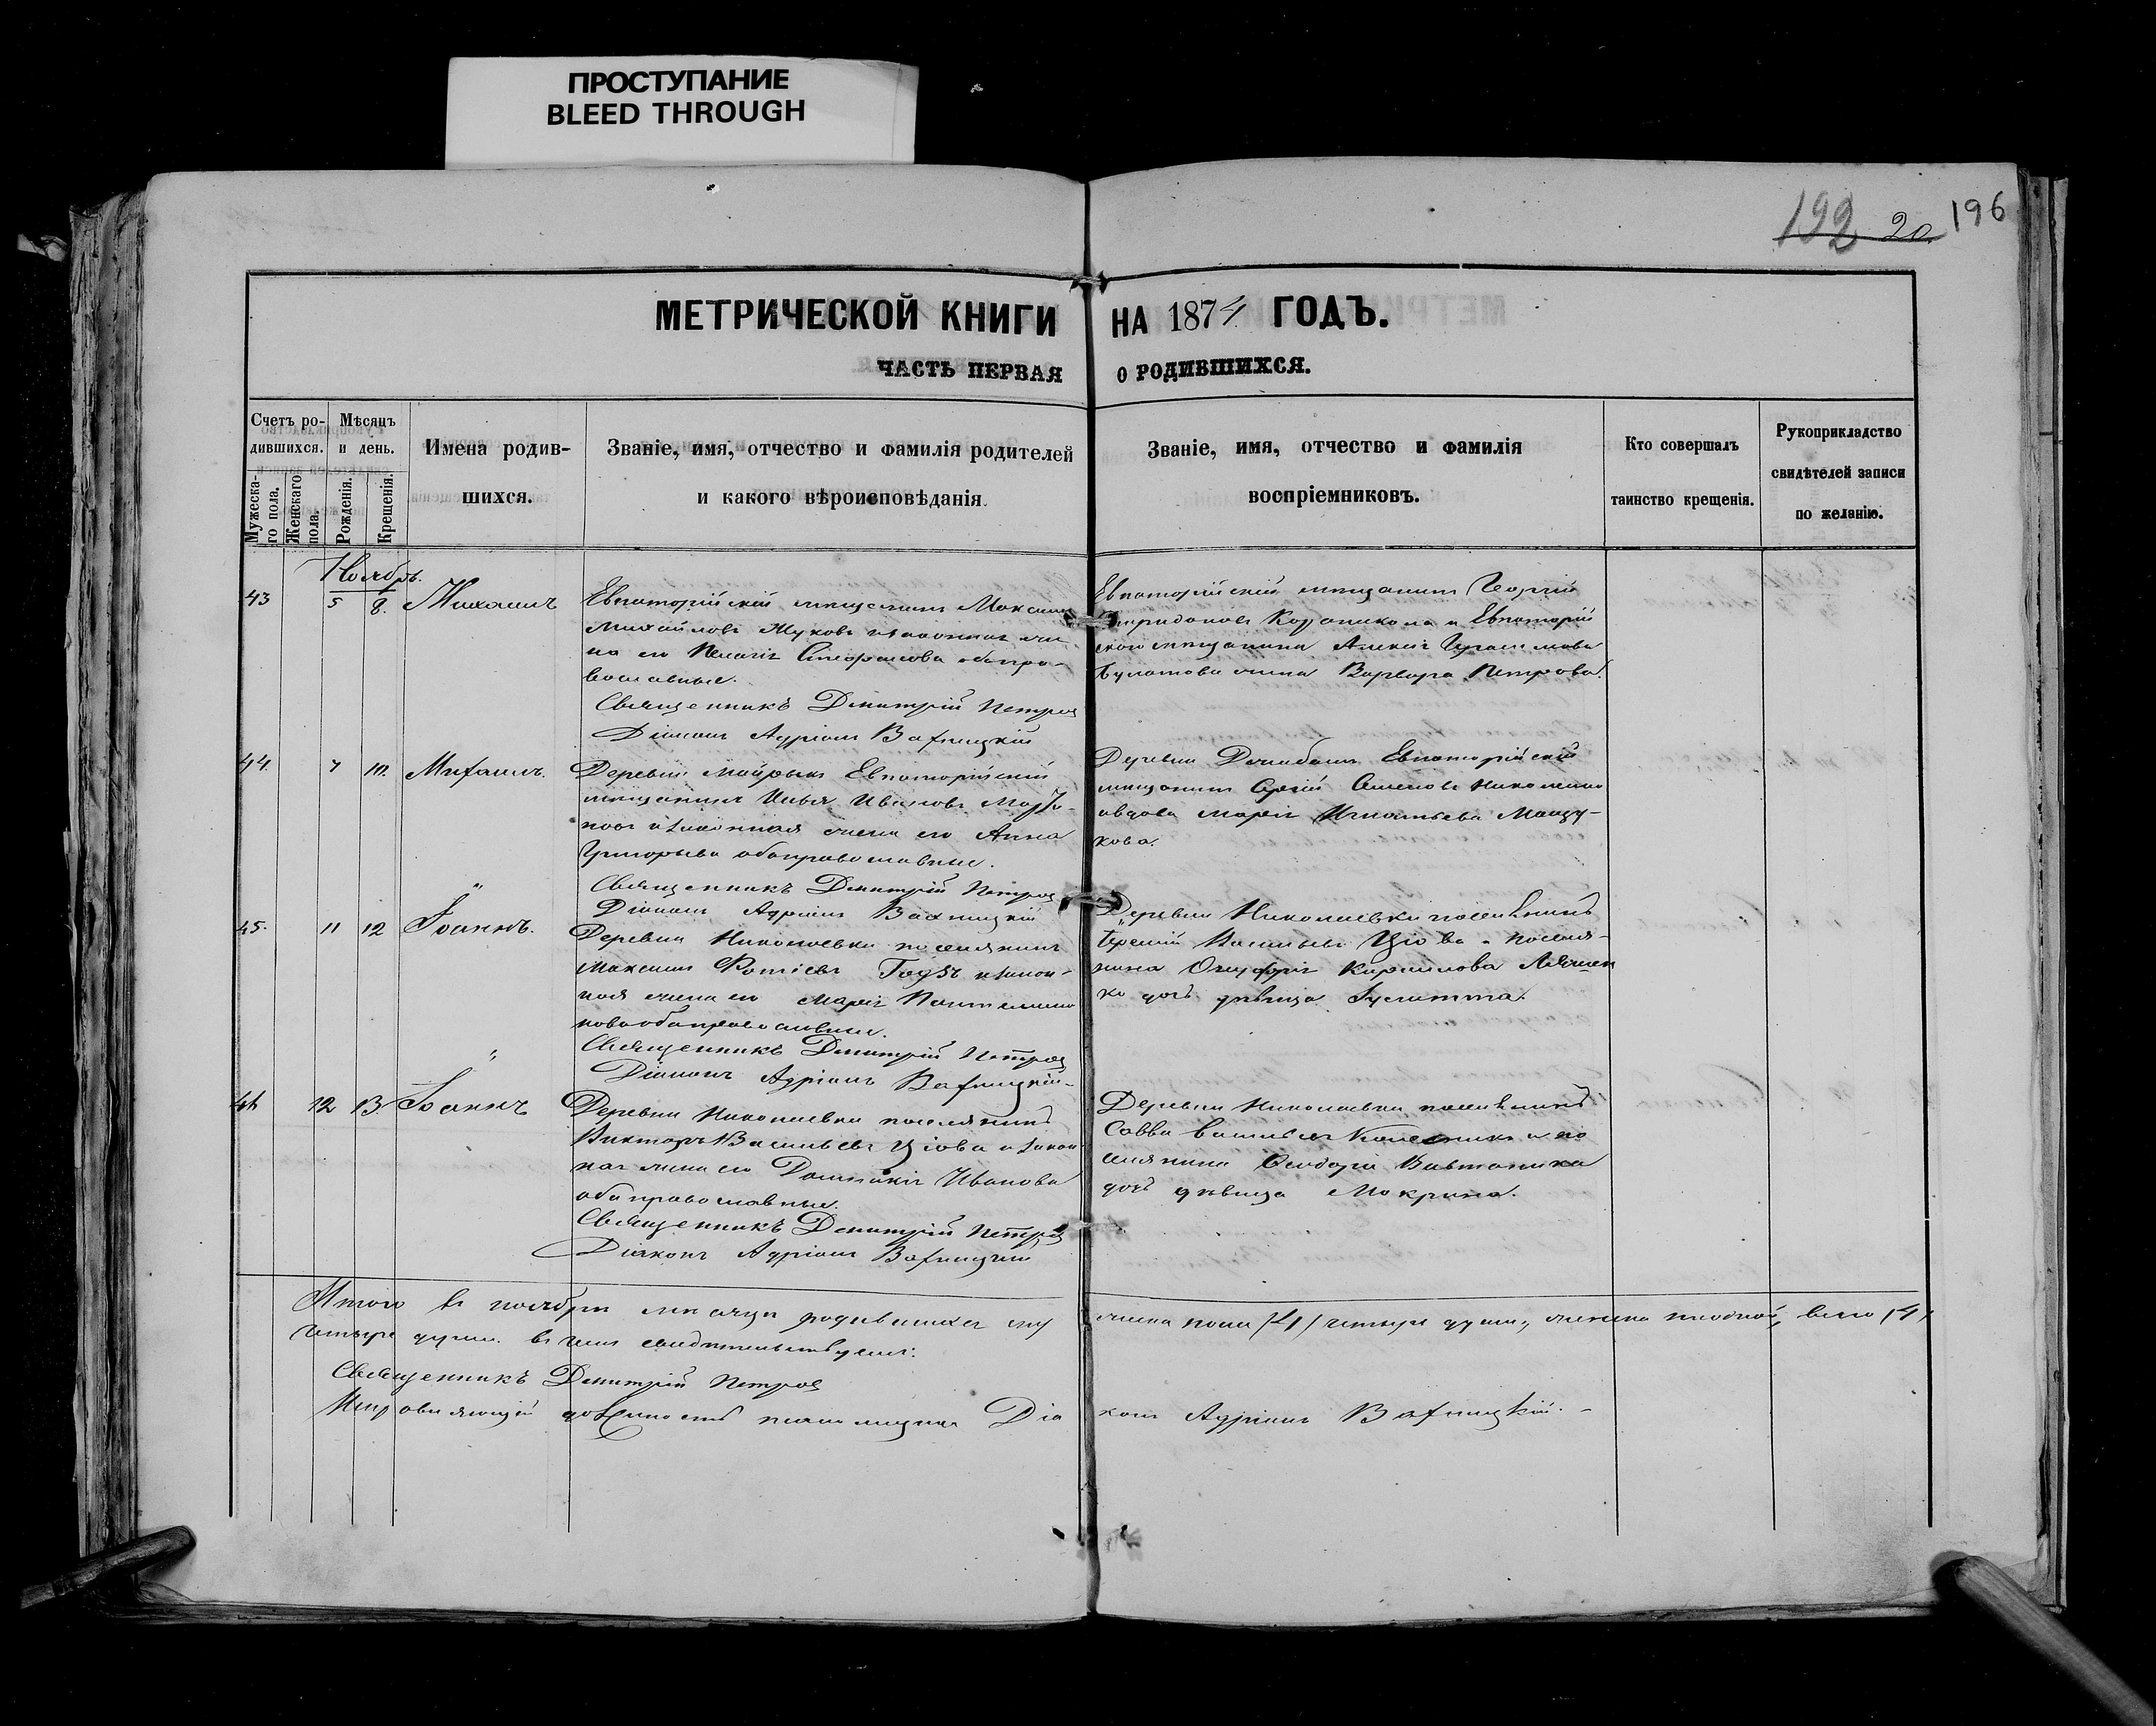 ПРОСТУПАНИЕ
BLEED THROUGH
192 20 196
МЕТРИЧЕСКОЙ КНИГИ НА 1874 ГОДЪ.
ЧАСТЬ ПЕРВАЯ О РОДИВШИХСЯ.
Счетъ ро-
дившихся.
Мужеска-
го пола.
Женскаго
пола.
Мѣсяцъ
и день.
Рожденія.
Крещенія.
Имена родив-
шихся.
Званіе, имя, отчество и фамилія родителей
и какого вѣроисповѣданія.
Званіе, имя, отчество и фамилія
воспріемниковъ.
Кто совершалъ
таинство крещенія.
Рукоприкладство
свидѣтелей записи
по желанію.
Ноябрь.
43 5 8. Михаилъ
Евпаторійскій мѣщанинъ Максимъ
Михайловъ Жуковъ и законная же
на его Пелагія Стефанова оба пра-
вославные.
Священникъ Димитрій Петровъ
Діаконъ Адріанъ
Евпаторійскій мѣщанинъ Георгій
Спиридоновъ и Евпаторій
скаго мѣщанина Алексія Герасимова
Булатова жена Варвара Петрова.
44. 7 10. Михаилъ.
Деревни Майрыкъ Евпаторійскій
мѣщанинъ Илья Ивановъ
новъ и законная жена его Анна
Григорьева оба православные.
Священникъ Димитрій Петровъ
Діаконъ Адріанъ
Деревни Евпаторійскій
мѣщанинъ Сергій Семеновъ Николенко
и вдова Марія Игнатьева
кова.
45. 11 12 Іоаннъ.
Деревни Николаевки поселянинъ
Максимъ Фотіевъ и закон-
ная жена его Марія Пантелеимо
нова оба православные.
Священникъ Димитрій Петровъ
Діаконъ Адріанъ
Деревни Николаевки поселянинъ
Васильевъ Ціова и поселя-
нина Онуфрія Кирилова Ляшен
ко дочь дѣвица Іулитта.
46 12 13 Іоаннъ
Деревни Николаевки поселянинъ
Викторъ Васильевъ Ціова и закон
ная жена его Домникія Иванова
оба православные.
Священникъ Димитрій Петровъ
Діаконъ Адріанъ
Деревни Николаевки поселянинъ
Савва Васильевъ Колесникъ и по
селянина Ѳеодора
дочь дѣвица Мокрина.
Итого въ ноябрѣ мѣсяцѣ родившихся муж
жеска пола (4) четыре души, женска ни одной, всего (4)
четыре души. въ чемъ свидѣтельствуемъ:
Священникъ Димитрій Петровъ
Исправляющій должность псаломщика Діа
конъ Адріанъ